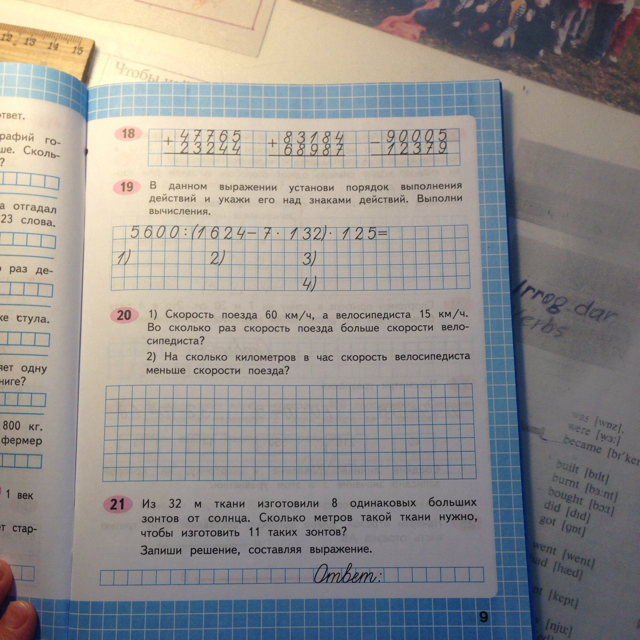 12 13 14 15
Чтобы
ответ.
рафий го-
ше. Сколь-
?
а отгадал
23 слова.
раз де-
ке стула.
яет одну
ниге?
800 кг.
фермер
1 век
ет стар-
18
+47765
23244
+83184
68987
-90005
12379
19
В данном выражении установи порядок выполнения
действий и укажи его над знаками действий. Выполни
вычисления.
5600:(1624-7·132)·125=
1) 2) 3)
4)
20
1) Скорость поезда 60 км/ч, а велосипедиста 15 км/ч.
Во сколько раз скорость поезда больше скорости вело-
сипедиста?
2) На сколько километров в час скорость велосипедиста
меньше скорости поезда?
21
Из 32 м ткани изготовили 8 одинаковых больших
зонтов от солнца. Сколько метров такой ткани нужно,
чтобы изготовить 11 таких зонтов?
Запиши решение, составляя выражение.
Ответ:
9
Irrog. dar
verbs
was [wɒz],
were [wɜ:]
became [bɪ'kei
built [bɪlt]
burnt [bɜ:nt]
bought [bɔ:t]
did [dɪd]
got [gɒt]
went [went]
had [hæd]
[kept]
[nju:]